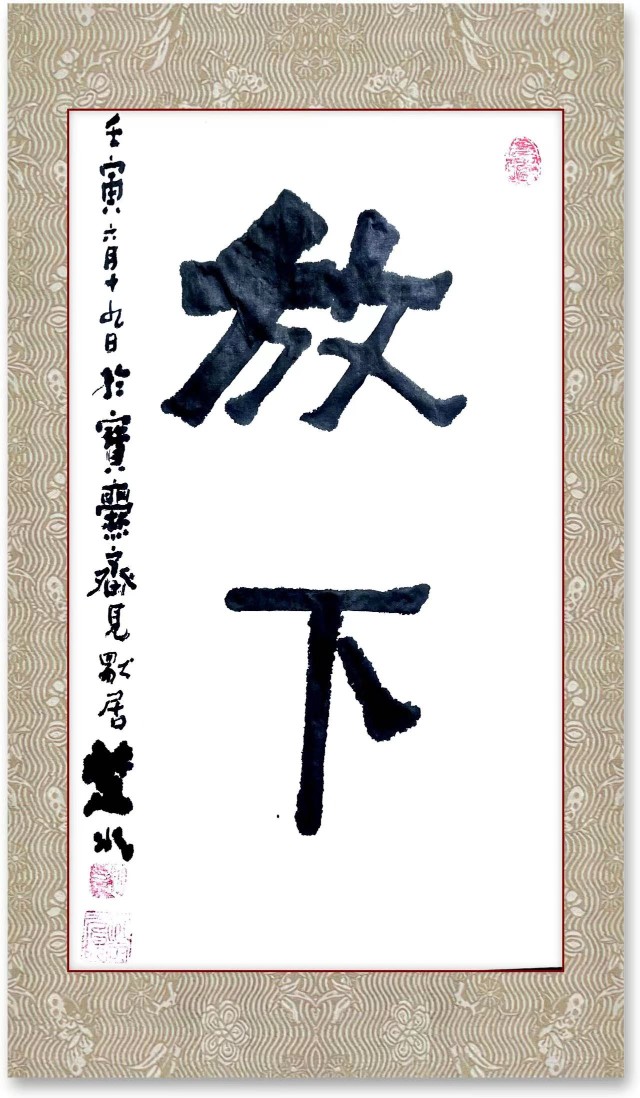 放下
壬寅六月十九日於寶爨齋見默居楚水